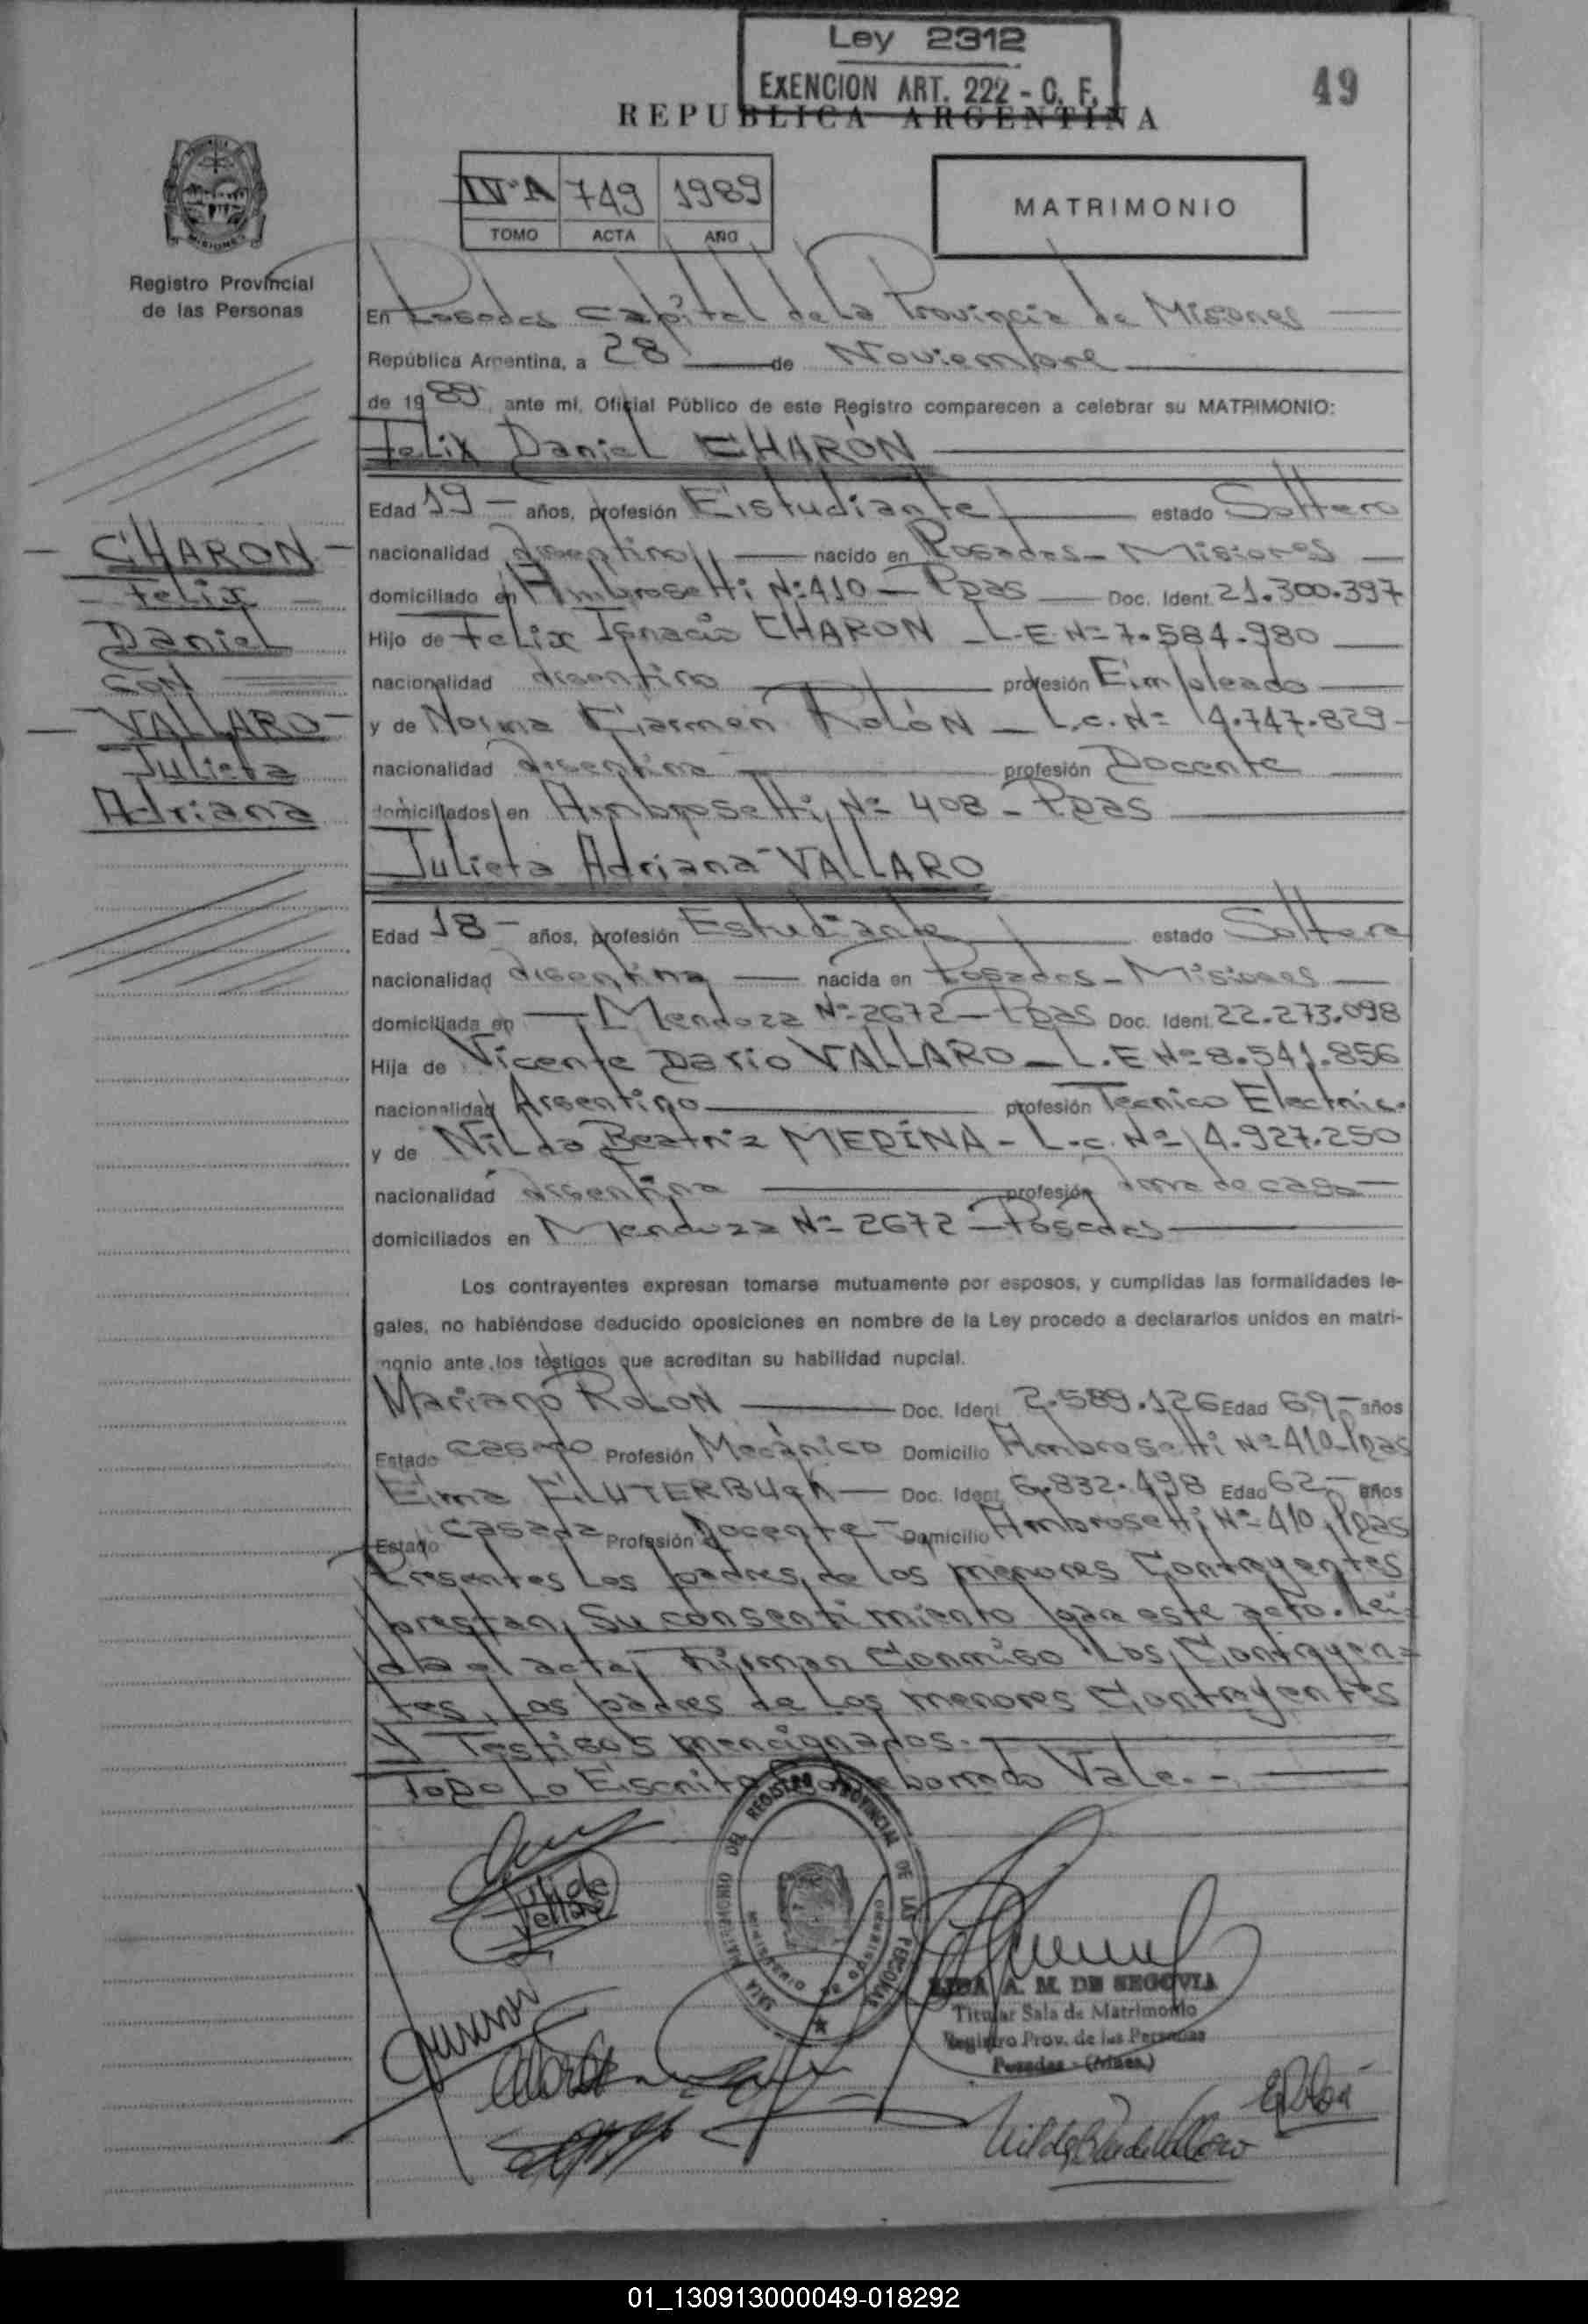 Ley 2312
EXENCION ART. 222 - C. F.
49
REPUBLICA ARGENTINA
IVºA 749 1989
TOMO ACTA AÑO
MATRIMONIO
Registro Provincial
de las Personas
En Posadas Capital de la Provincia de Misiones
República Argentina, a 28 de Noviembre
de 1989, ante mí, Oficial Público de este Registro comparecen a celebrar su MATRIMONIO:
Felix Daniel CHARÓN
Edad 19 - años, profesión Estudiante estado Soltero
nacionalidad argentino nacido en Posadas - Misiones
domiciliado en Ambrosetti Nº 410 - Pdas Doc. Ident. 21.300.397
Hijo de Felix Ignacio CHARON - L.E. Nº 7.584.980
nacionalidad argentino profesión Empleado
y de Norma Carmen Rolón - L.C. Nº 4.747.829-
nacionalidad argentina profesión Docente
domiciliados en Ambrosetti Nº 408 - Pdas
Julieta Adriana VALLARO
Edad 18 - años, profesión Estudiante estado Soltera
nacionalidad argentina nacida en Posadas - Misiones
domiciliada en Mendoza Nº 2672 - Pdas Doc. Ident. 22.273.098
Hija de Vicente Dario VALLARO - L.E Nº 8.541.856
nacionalidad Argentino profesión Tecnico Electric.
y de Nilda Beatriz MEDINA - L.C. Nº 4.927.250
nacionalidad argentina profesión ama de casa
domiciliados en Mendoza Nº 2672 - Posadas
Los contrayentes expresan tomarse mutuamente por esposos, y cumplidas las formalidades le-
gales, no habiéndose deducido oposiciones en nombre de la Ley procedo a declararlos unidos en matri-
monio ante los testigos que acreditan su habilidad nupcial.
Mariano ROLON Doc. Ident. 2.589.126 Edad 69 - años
Estado casado Profesión Mecánico Domicilio Ambrosetti Nº 410 - Pdas
Elma Doc. Ident. 6.832.498 Edad 62 - años
Estado casada Profesión Docente - Domicilio Ambrosetti Nº 410, Pdas
Presentes los padres de los menores Contrayentes
prestan su consentimiento para este acto. Leí-
da el acta, firman conmigo los Contrayen=
tes, los padres de los menores Contrayentes
y Testigos mencionados.-
Todo lo Escrito Sobreborrado Vale.-
- CHARON -
- Felix -
Daniel
con
- VALLARO -
Julieta
Adriana
SALA MATRIMONIO DEL REGISTRO PROVINCIAL DE LAS PERSONAS
A. M. DE SEGOVIA
Titular Sala de Matrimonio
Registro Prov. de las Personas
Posadas - (Mnes.)
01_130913000049-018292